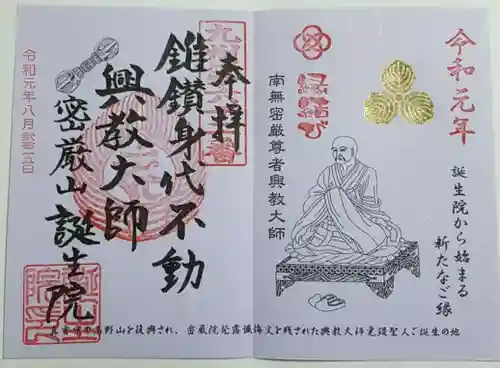 令和元年
誕生院から始まる
新たなご縁
縁結び
南無密厳尊者興教大師
奉拝
錐鑽身代不動
興教大師
密厳山 誕生院
令和元年八月弐拾五日
高野山を復興され、密厳院発露懺悔文を残された興教大師覚鑁聖人ご誕生の地